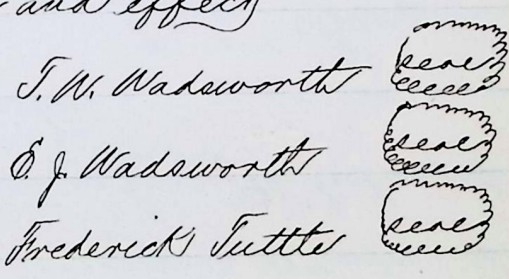 and effect
T. W. Wadsworth seal
E. J. Wadsworth seal
Frederick Tuttle seal